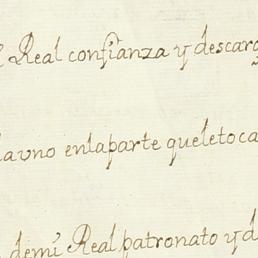 Real confianza y descarg
auno enlaparte queletoca
demi Real patronato y d